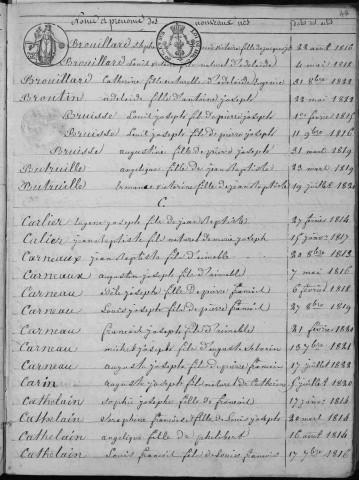 Noms et prénoms des nouveaux nés
Brouillard 22 août 1816
Brouillard Louis naturel d'adelaide 4 mai 1818
Brouillard Catherine fille naturelle d'adelaide 21 8bre 1822
Broutin adelaide fille d'antoine joseph 22 mai 1822
Bruisse Louis joseph fils de pierre joseph 1er février 1815
Bruisse Louis joseph fils de pierre joseph 11 9bre 1816
Bruisse augustine fille de pierre joseph 21 mars 1819
Butruille angelique fille de jean Baptiste 23 mars 1819
Butruille fille de jean Baptiste 19 juillet 1820
C
Carlier eugene joseph fils de jean Baptiste 27 février 1814
Calier jean Baptiste fils naturel de marie joseph 15 janvier 1817
Carneaux jean Baptiste fils d'aimable 20 8bre 1813
Carneaux augustin joseph fils d'aimable 7 mai 1816
Carneau adele josephe fille de pierre francois 6 février 1818
Carneau Louis joseph fils de pierre francois 27 8bre 1819
Carneau francois joseph fils d'aimable 21 février 1820
Carneau michel joseph fils d'auguste 13 7bre 1821
Carneau auguste joseph fils de pierre francois 17 juillet 1822
Carin auguste joseph fils naturel de Catherine 5 juillet 1820
Cathelain sophie josephe fille de francois 17 janvier 1814
Cathelain fille de Louis joseph 20 mars 1814
Cathelain angelique fille de philibert 16 août 1814
Cathelain Louis francois fils de Louis francois 17 7bre 1816